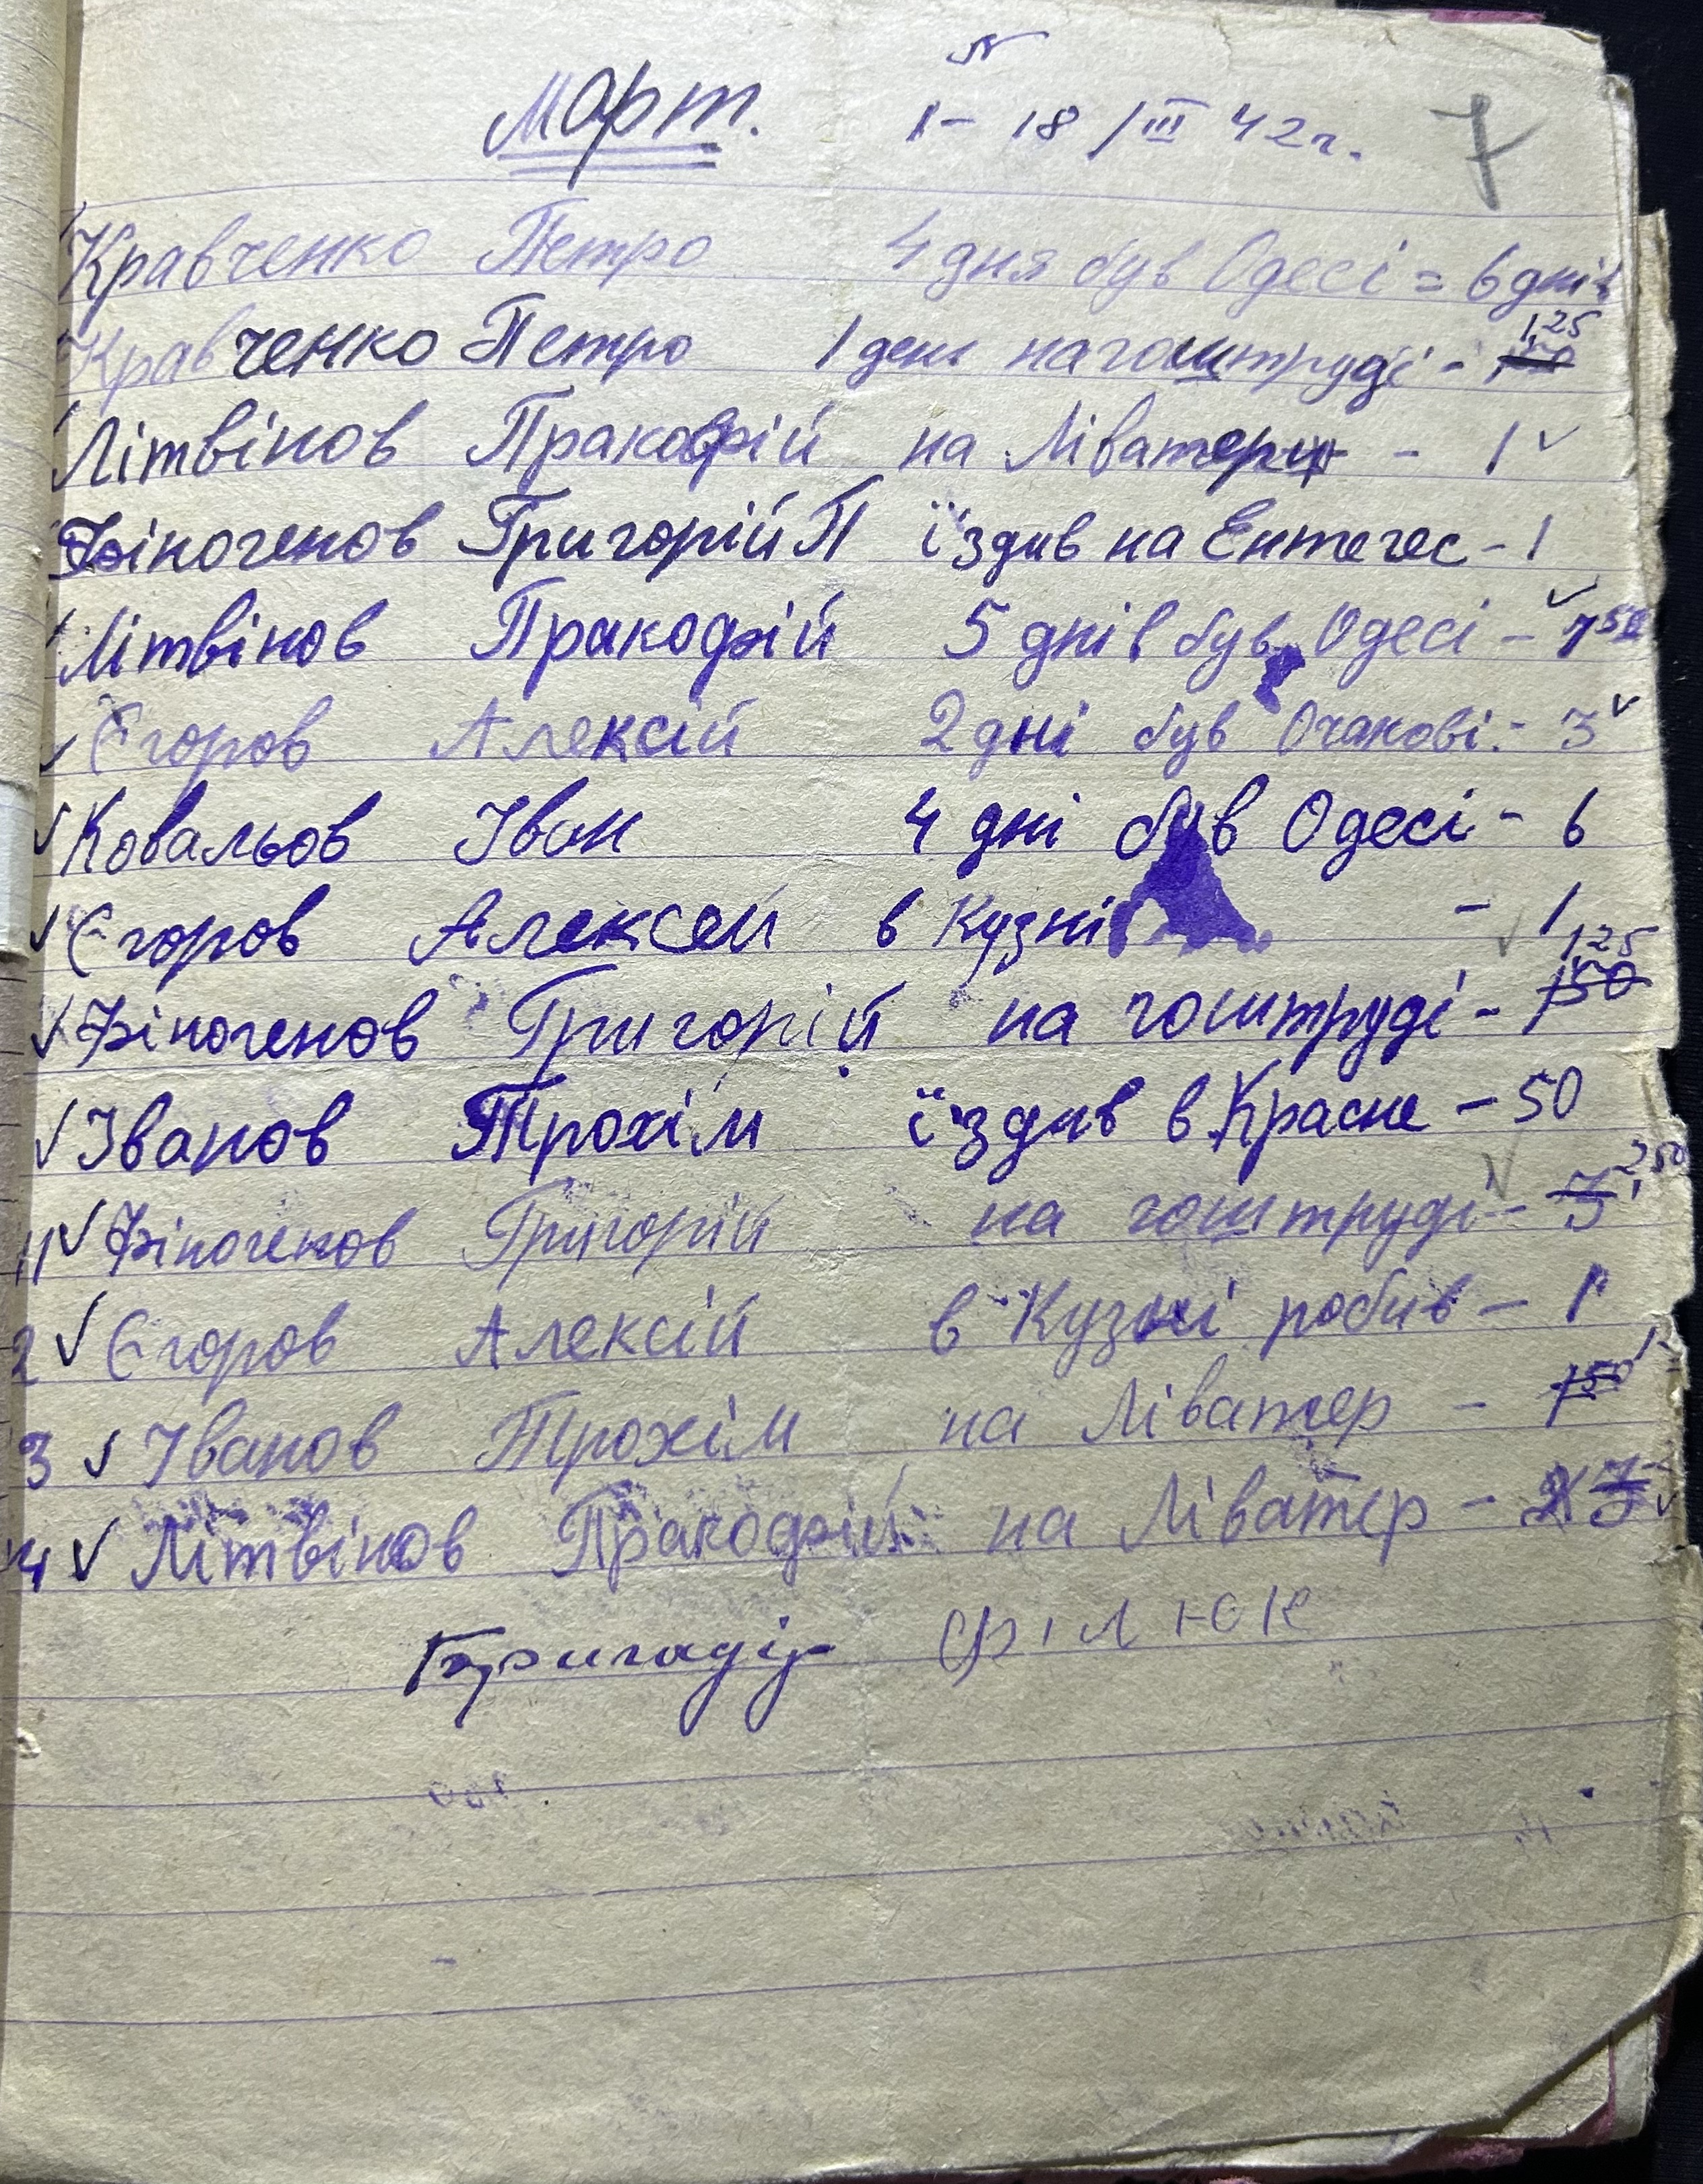 Март. 1 - 18 / III 42 г. 7
Кравченко Петро 4 дня був Одесі = 6 днів
Кравченко Петро 1 день на гоштруді - 1,25
Літвінов Пракофій на Ліватері - 1
Фіногенов Григорій П їздив на Ентегес - 1
Літвінов Пракофій 5 днів був Одесі - 7 50
Єгоров Алексій 2 дні був Очакові - 3
Ковальов Іван 4 дні був Одесі - 6
Єгоров Алексей в Кузні - 1
Фіногенов Григорій на гоштруді - 150 1,25
Іванов Трохім їздив в Красне - 50
11 Фіногенов Григорій на гоштруді - 3 2,50
2 Єгоров Алексій в Кузні робив - 1
3 Іванов Трохім на Ліватер - 150 1
4 Літвінов Пракофій на Ліватер - 2
Бригадір Філюк